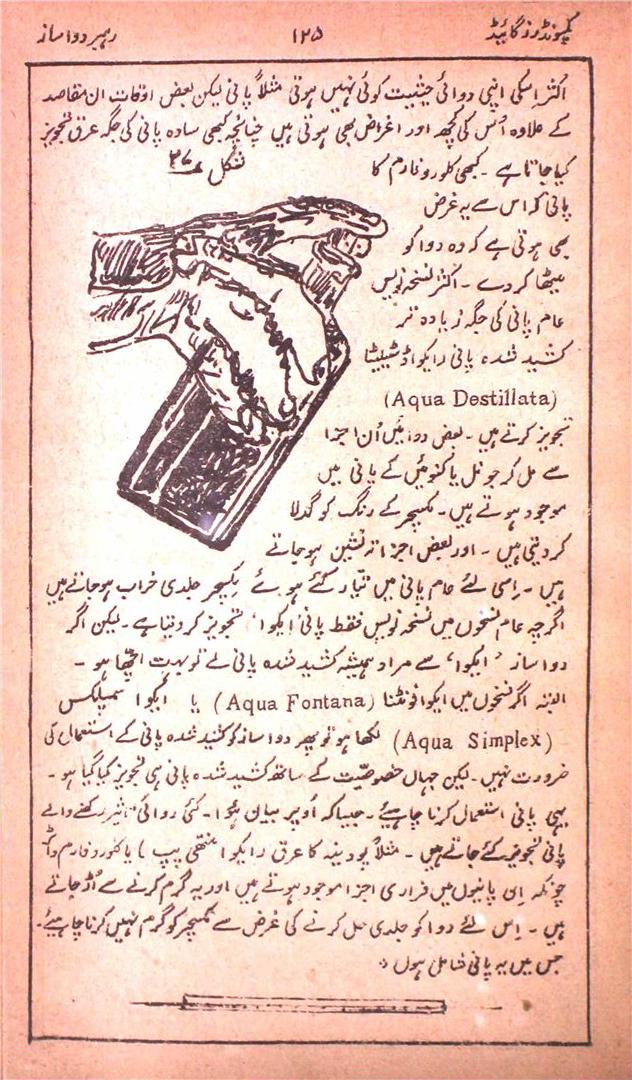 کمپونڈرز گائیڈ ۱۲۵ رہبر دواساز
اکثر اسکی اپنی دوائی حیثیت کوئی نہیں ہوتی مثلاً پانی لیکن بعض اوقات ان مقاصد
کے علاوہ اُس کی کچھ اور اغراض بھی ہوتی ہیں چنانچہ کبھی سادہ پانی کی جگہ عرق تجویز
کیا جاتا ہے ۔ کبھی کلوروفارم کا
شکل ۲۷
پانی کہ اس سے یہ غرض
بھی ہوتی ہے کہ وہ دوا کو
میٹھا کر دے ۔ اکثر نسخہ نویس
عام پانی کی جگہ زیادہ تر
کشید شدہ پانی (ایکوا ڈسٹیلیٹا
(Aqua Destillata)
تجویز کرتے ہیں ۔ بعض دوائیں اُن اجزا
سے مل کر جو نل یا کنوئیں کے پانی میں
موجود ہوتے ہیں ۔ مکسچر کے رنگ کو گدلا
کر دیتی ہیں ۔ اور بعض اجزا تہ نشین ہو جاتے
ہیں ۔ اِسی لئے عام پانی میں تیار کئے ہوئے مکسچر جلدی خراب ہو جاتے ہیں
اگرچہ عام نسخوں میں نسخہ نویس فقط پانی 'ایکوا' تجویز کر دیتا ہے ۔ لیکن اگر
دواساز 'ایکوا' سے مراد ہمیشہ کشید شدہ پانی لے تو بہت اچھا ہو ۔
البتہ اگر نسخوں میں ایکوا فونٹنا (Aqua Fontana) یا ایکوا سمپلکس
(Aqua Simplex) لکھا ہو تو پھر دواساز کو کشید شدہ پانی کے استعمال کی
ضرورت نہیں ۔ لیکن جہاں خصوصیّت کے ساتھ کشید شدہ پانی ہی تجویز کیا گیا ہو ۔
یہی پانی استعمال کرنا چاہیئے ۔ جیسا کہ اُوپر بیان ہُوا ۔ کئی دوائی تاثیر رکھنے والے
پانی تجویز کئے جاتے ہیں ۔ مثلاً پودینہ کا عرق (ایکوا منتھی پپ) یا کلوروفارم واٹر
چونکہ اِن پانیوں میں فراری اجزا موجود ہوتے ہیں اور یہ گرم کرنے سے اُڑ جاتے
ہیں ۔ اِس لئے دوا کو جلدی حل کرنے کی غرض سے مکسچر کو گرم نہیں کرنا چاہیئے ۔
جس میں یہ پانی شامل ہوں ؞